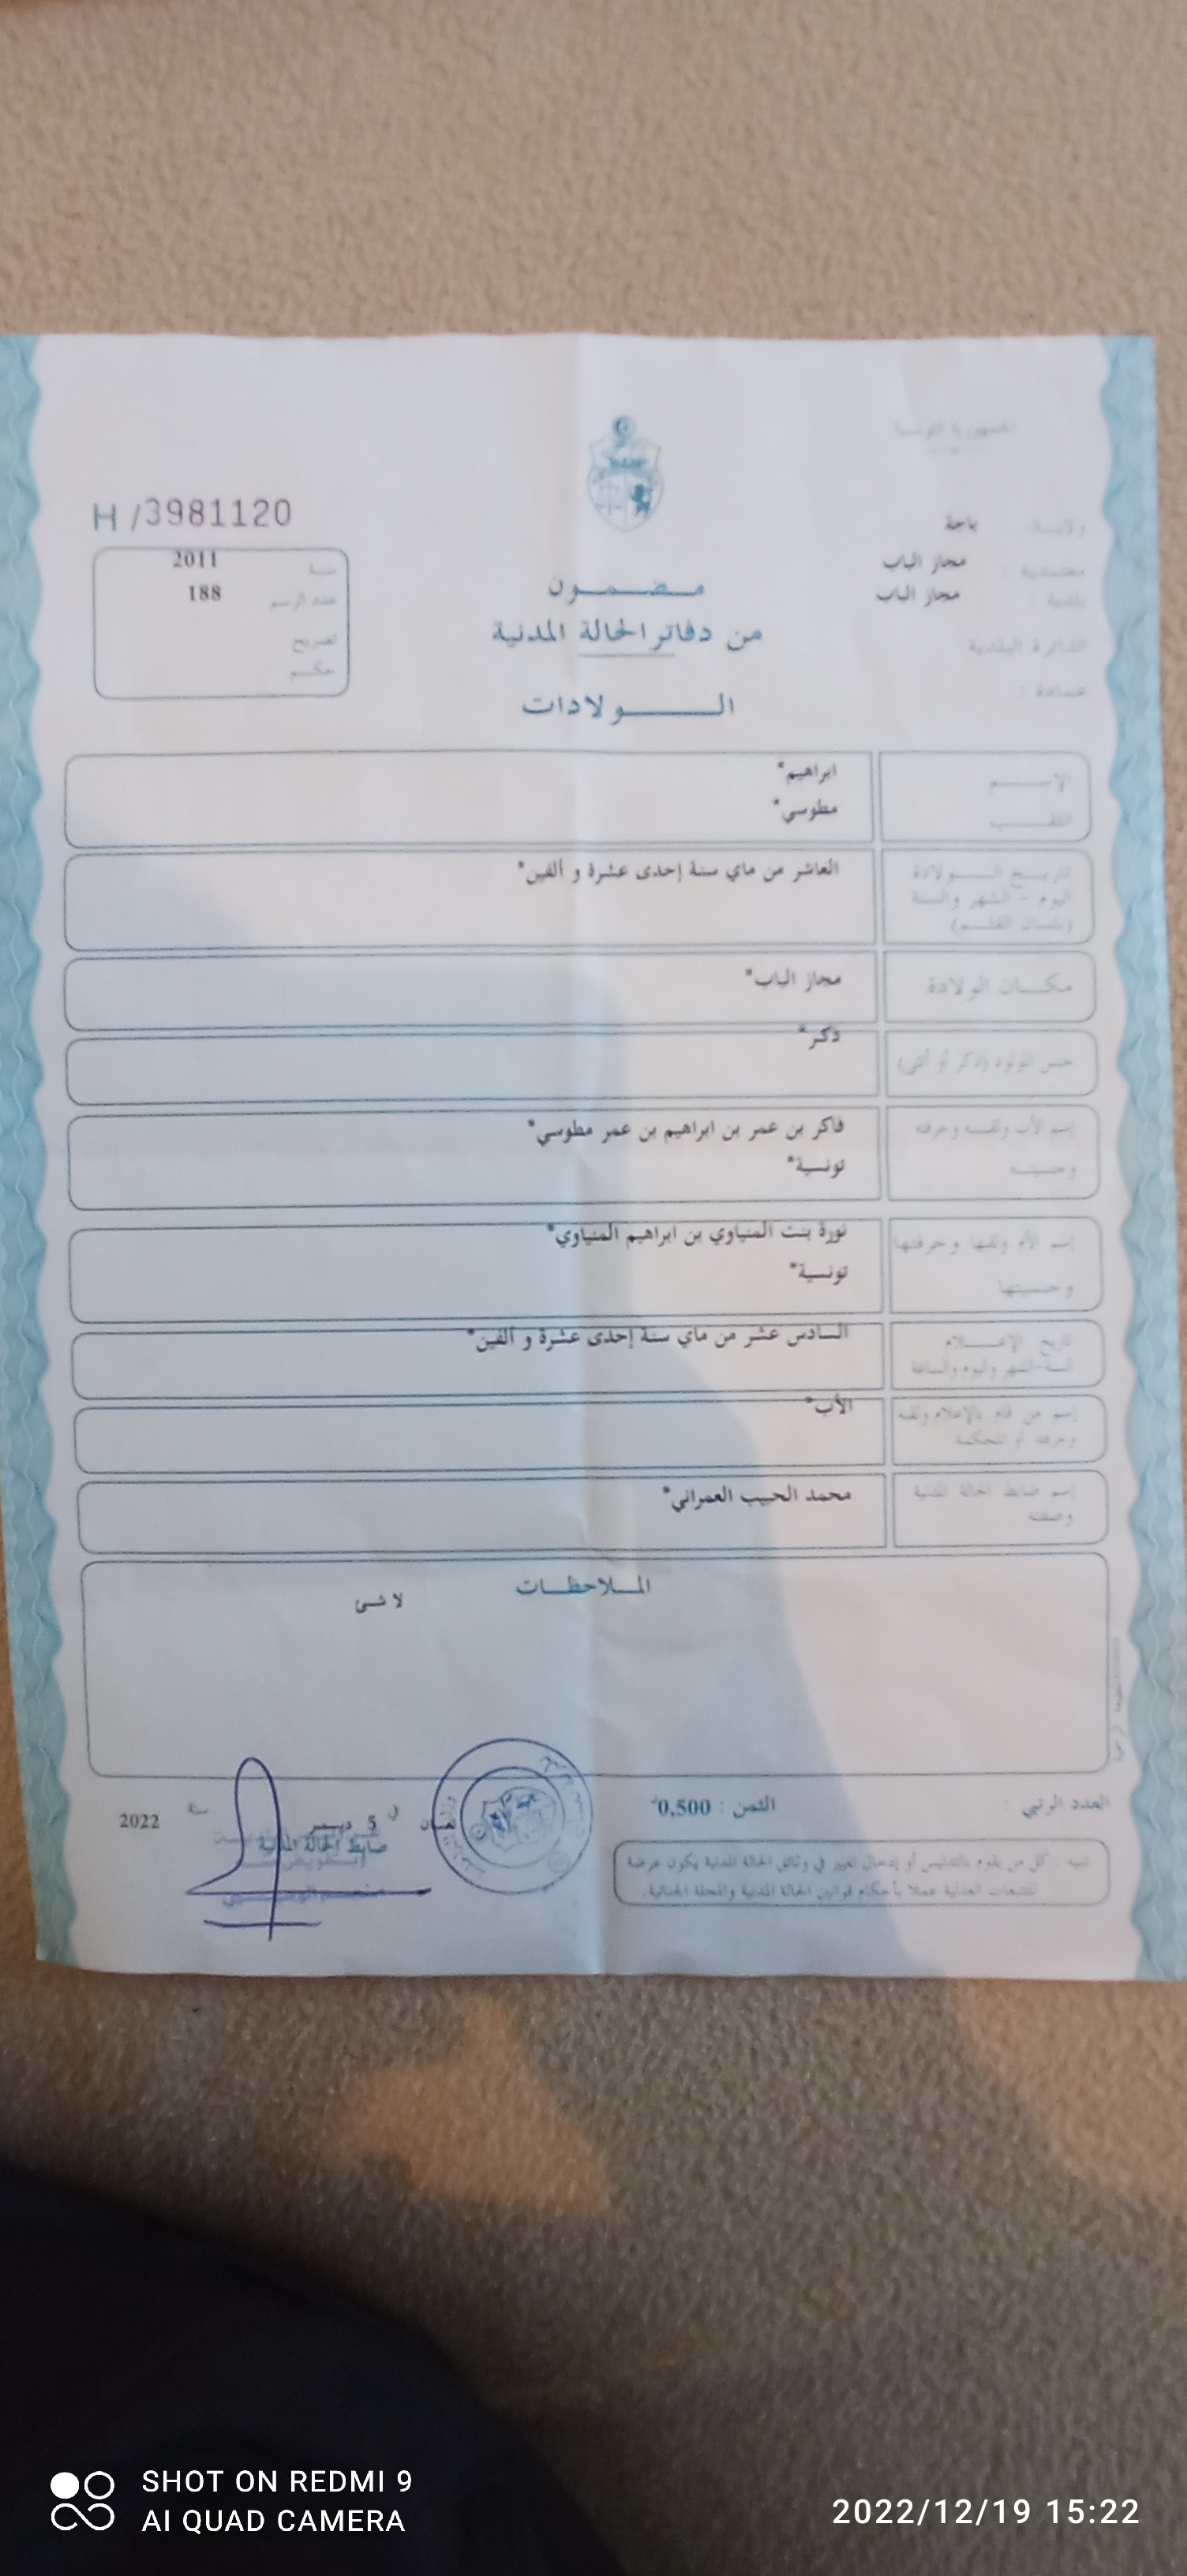 الجمهورية التونسية
H /3981120
ولاية: باجة
معتمدية : مجاز الباب
بلدية : مجاز الباب
الدائرة البلدية
عمادة :
سنة 2011
عدد الرسم 188
تصريح
حكم
مضمون
من دفاتر الحالة المدنية
الولادات
الإسم ابراهيم*
اللقب مطوسي*
تاريخ الولادة العاشر من ماي سنة إحدى عشرة و ألفين*
اليوم - الشهر والسنة
(بلسان القلم)
مكان الولادة مجاز الباب*
جنس المولود (ذكر أو أنثى) ذكر*
إسم الأب ولقبه وحرفته فاكر بن عمر بن ابراهيم بن عمر مطوسي*
وجنسيته تونسية*
إسم الأم ولقبها وحرفتها نورة بنت المنياوي بن ابراهيم المنياوي*
وجنسيتها تونسية*
تاريخ الإعلام السادس عشر من ماي سنة إحدى عشرة و ألفين*
السنة-الشهر واليوم والساعة
إسم من قام بالإعلام ولقبه الأب*
وحرفته أو المحكمة
إسم ضابط الحالة المدنية محمد الحبيب العمراني*
وصفته
الملاحظات
لا شئ
العدد الرتبي :
الثمن : 0,500
في 5 ديسمبر سنة 2022
ضابط الحالة المدنية
تنبيه : كل من يقوم بالتدليس أو إدخال تغيير في وثائق الحالة المدنية يكون عرضة
للتتبعات العدلية عملا بأحكام قوانين الحالة المدنية والمجلة الجنائية.
SHOT ON REDMI 9
AI QUAD CAMERA
2022/12/19 15:22